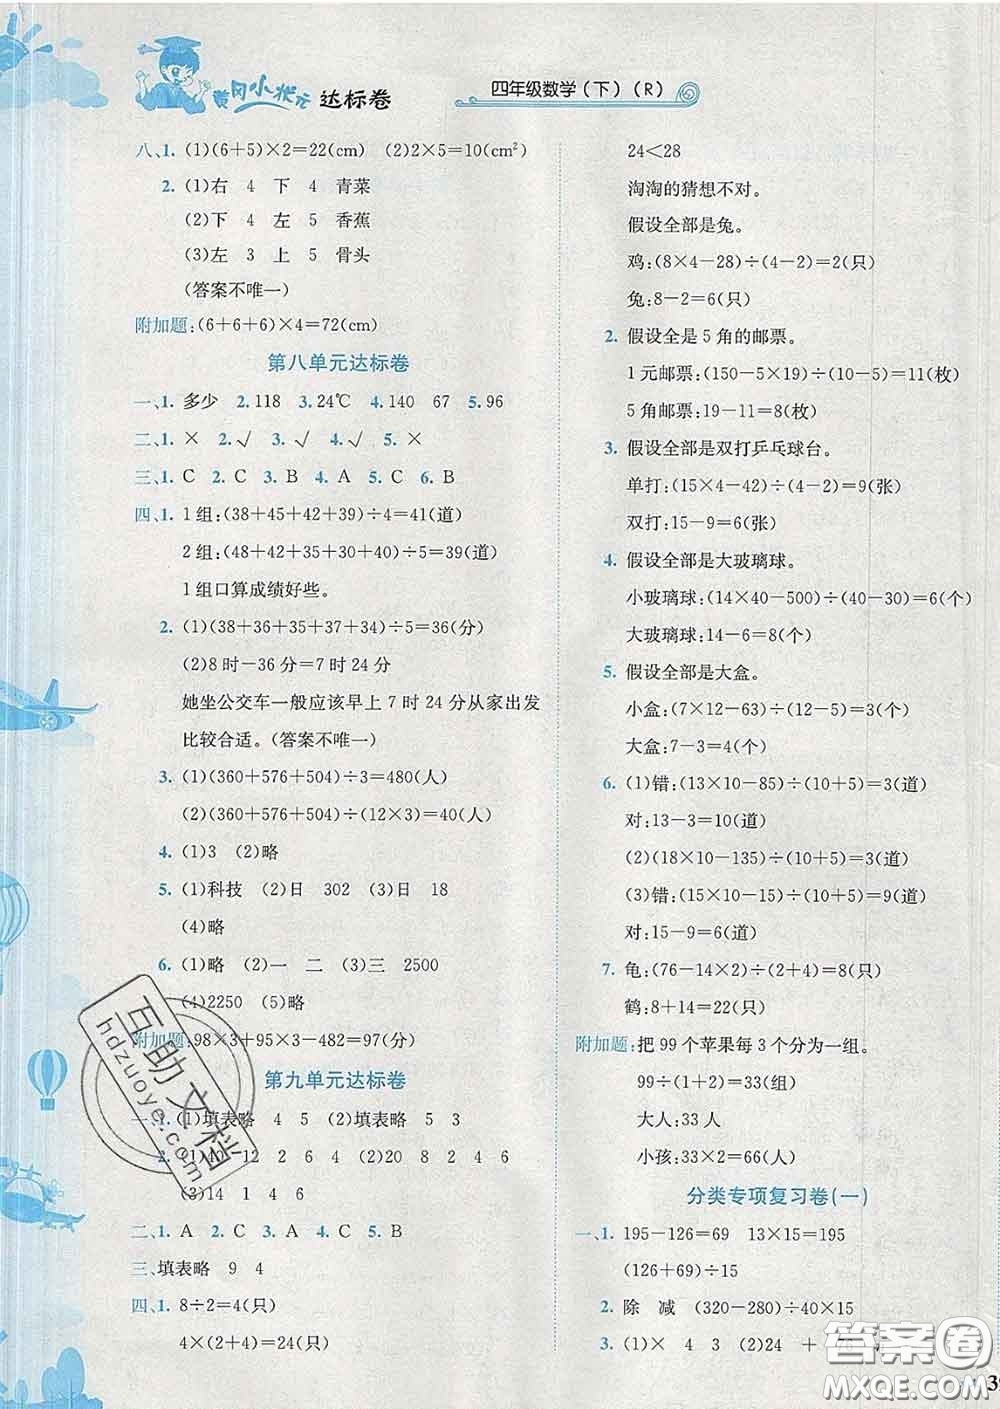 黄冈小状元 达标卷
四年级数学(下)(R)
八、1. (1)(6+5)×2=22(cm) (2)2×5=10(cm²)
2. (1)右 4 下 4 青菜
(2)下 4 左 5 香蕉
(3)左 3 上 5 骨头
(答案不唯一)
附加题:(6+6+6)×4=72(cm)
第八单元达标卷
一、1. 多少 2. 118 3. 24℃ 4. 140 67 5. 96
二、1. × 2. √ 3. √ 4. √ 5. ×
三、1. C 2. C 3. B 4. A 5. C 6. B
四、1. 1组:(38+45+42+39)÷4=41(道)
2组:(48+42+35+30+40)÷5=39(道)
1组口算成绩好些。
2. (1)(38+36+35+37+34)÷5=36(分)
(2)8时-36分=7时24分
她坐公交车一般应该早上7时24分从家出发
比较合适。(答案不唯一)
3. (1)(360+576+504)÷3=480(人)
(2)(360+576+504)÷(12×3)=40(人)
4. (1)3 (2)略
5. (1)科技 (2)日 302 (3)日 18
(4)略
6. (1)略 (2)一 二 (3)三 2500
(4)2250 (5)略
附加题:98×3+95×3-482=97(分)
第九单元达标卷
一、1. (1)填表略 4 5 (2)填表略 5 3
2. (1)40 12 2 6 4 (2)20 8 2 4 6
(3)14 1 4 6
二、1. A 2. C 3. C 4. C 5. A
三、填表略 9 4
四、1. 8÷2=4(只)
4×(2+4)=24(只)
24<28
淘淘的猜想不对。
假设全部是兔。
鸡:(8×4-28)÷(4-2)=2(只)
兔:8-2=6(只)
2. 假设全是5角的邮票。
1元邮票:(150-5×19)÷(10-5)=11(枚)
5角邮票:19-11=8(枚)
3. 假设全部是双打乒乓球台。
单打:(15×4-42)÷(4-2)=9(张)
双打:15-9=6(张)
4. 假设全部是大玻璃球。
小玻璃球:(14×40-500)÷(40-30)=6(个)
大玻璃球:14-6=8(个)
5. 假设全部是大盒。
小盒:(7×12-63)÷(12-5)=3(盒)
大盒:7-3=4(盒)
6. (1)错:(13×10-85)÷(10+5)=3(道)
对:13-3=10(道)
(2)(18×10-135)÷(10+5)=3(道)
(3)错:(15×10-15)÷(10+5)=9(道)
对:15-9=6(道)
7. 龟:(76-14×2)÷(2+4)=8(只)
鹤:8+14=22(只)
附加题:把99个苹果每3个分为一组。
99÷(1+2)=33(组)
大人:33人
小孩:33×2=66(人)
分类专项复习卷(一)
一、1. 195-126=69 13×15=195
(126+69)÷15
2. 除 减 (320-280)÷40×15
3. (1)× 4 4 (2)24 +
互助文档
hdzuoye.com
答案圈
MXQE.COM